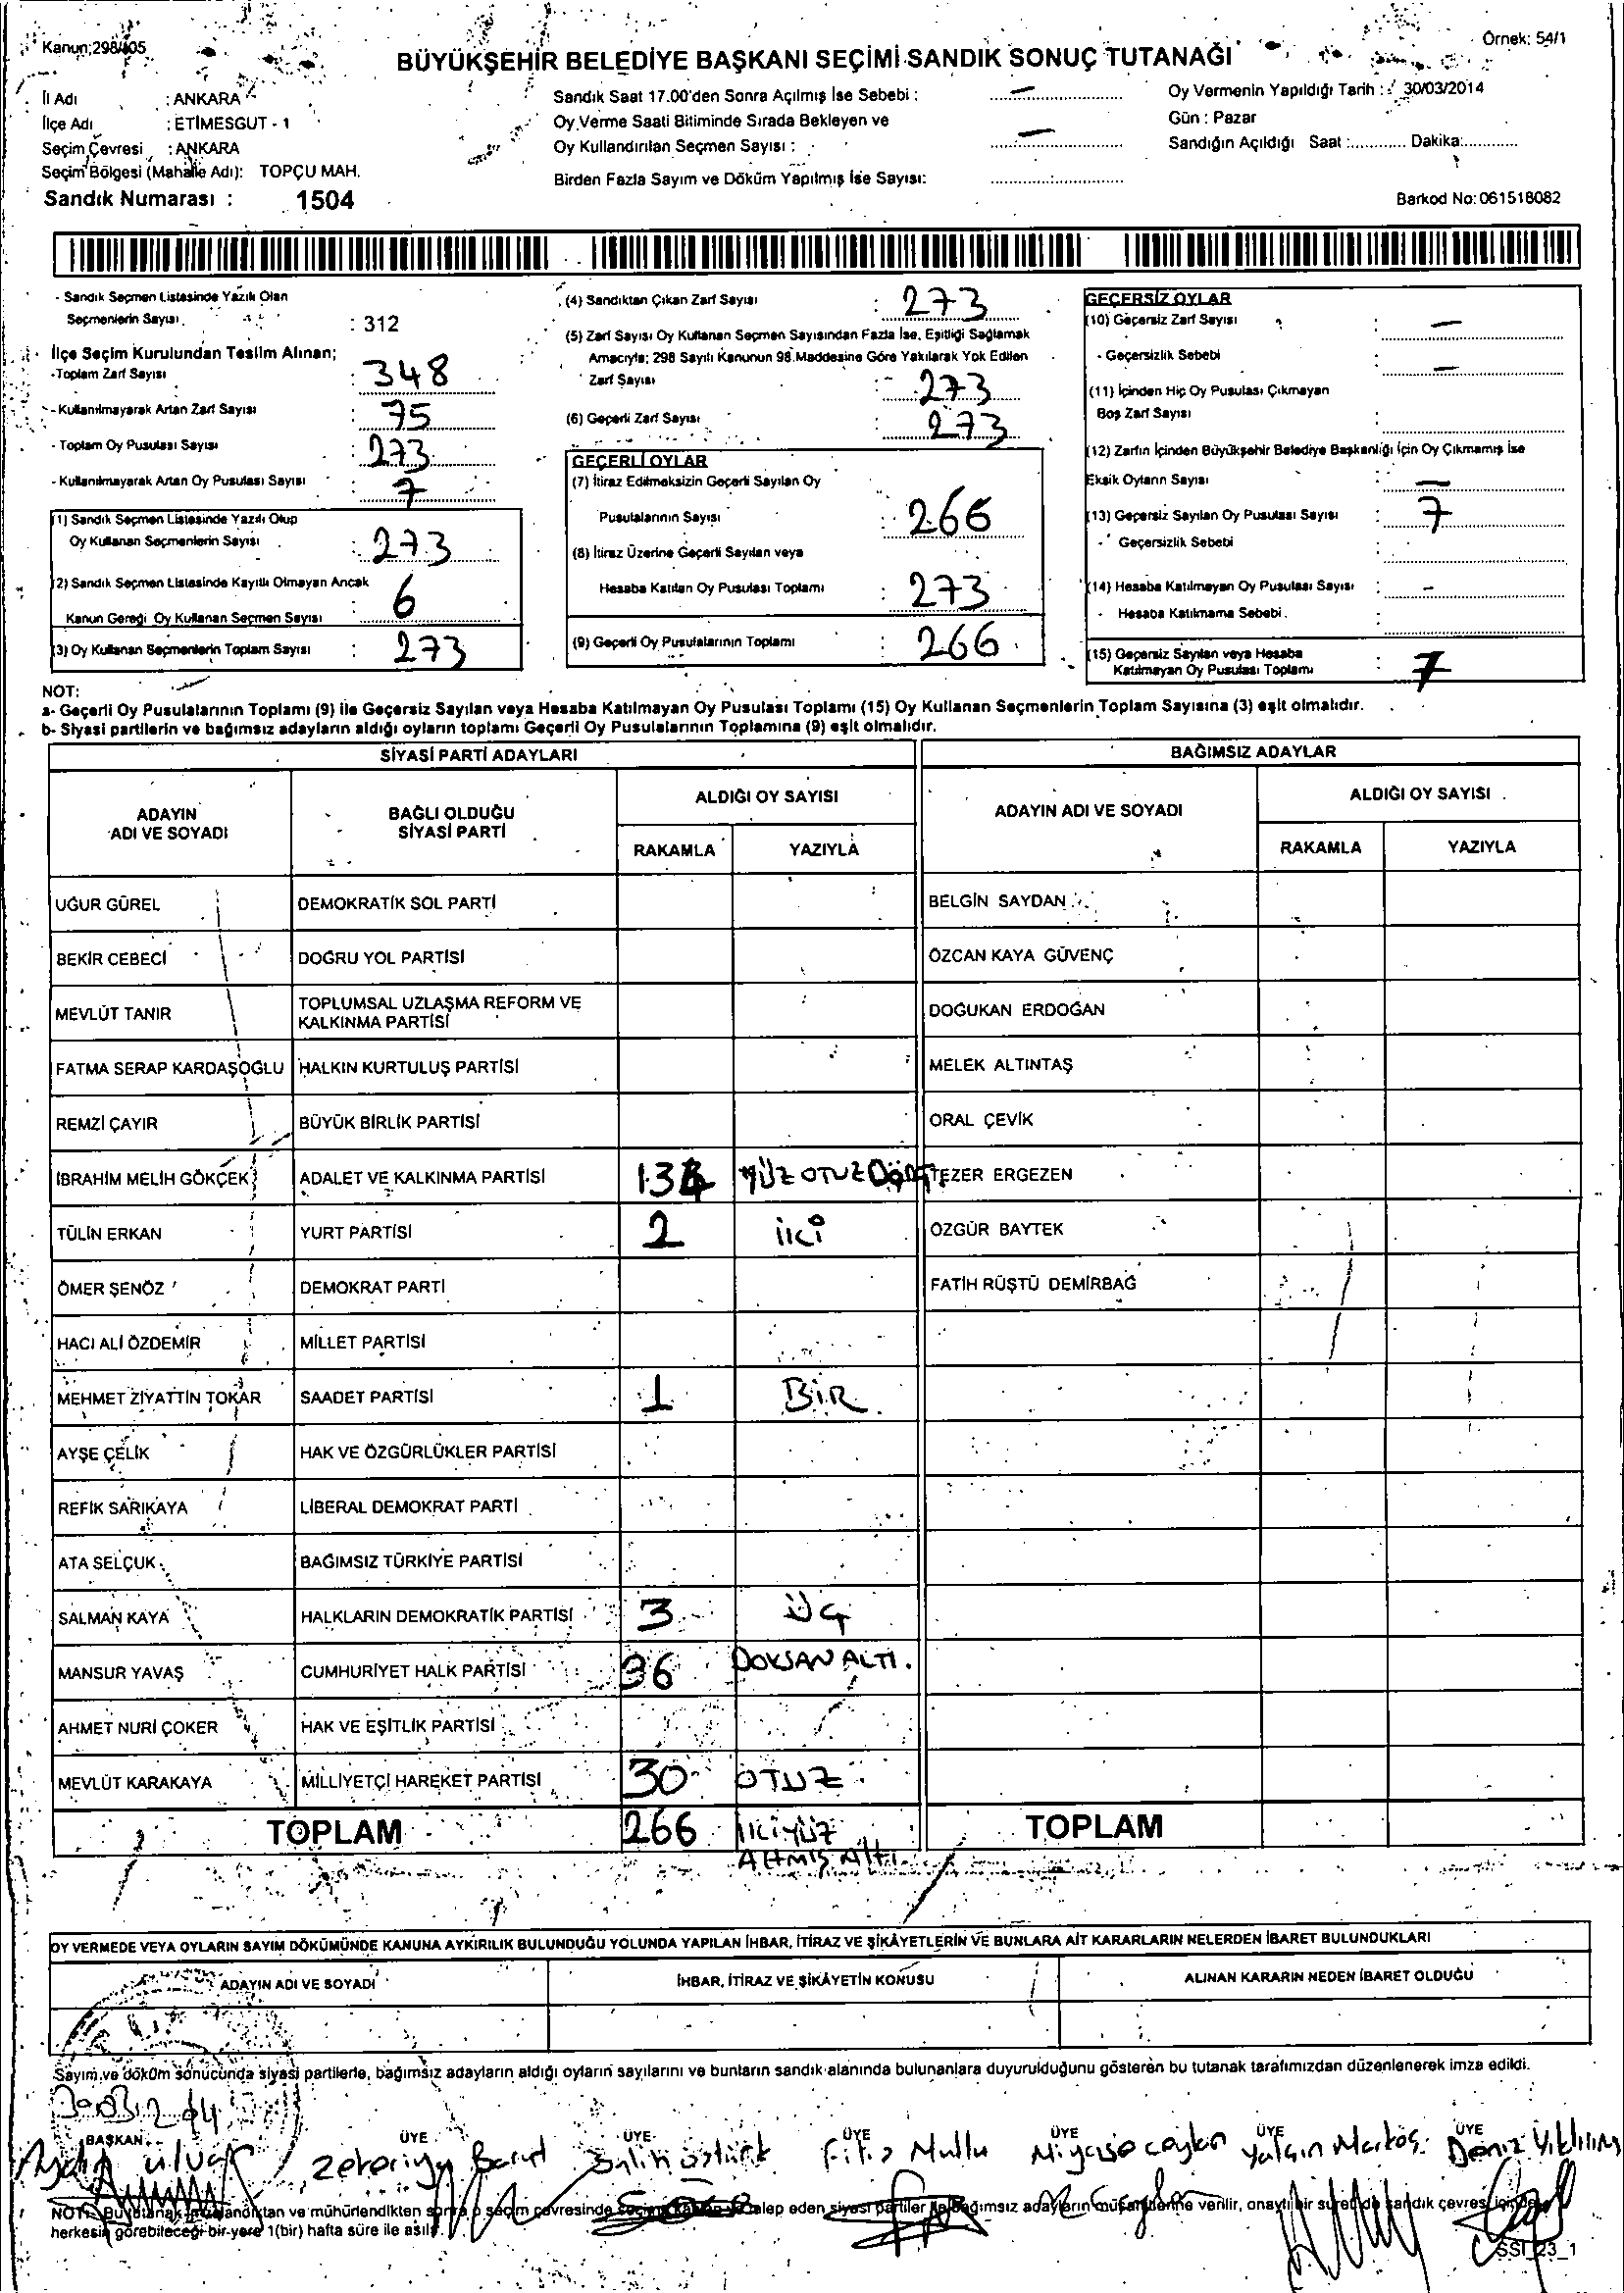 Kanun;298/105
Örnek: 54/1
BÜYÜKŞEHİR BELEDİYE BAŞKANI SEÇİMİ SANDIK SONUÇ TUTANAĞI
İl Adı : ANKARA
İlçe Adı : ETİMESGUT - 1
Seçim Çevresi : ANKARA
Seçim Bölgesi (Mahalle Adı): TOPÇU MAH.
Sandık Numarası : 1504
Sandık Saat 17.00'den Sonra Açılmış İse Sebebi :
Oy Verme Saati Bitiminde Sırada Bekleyen ve
Oy Kullandırılan Seçmen Sayısı :
Birden Fazla Sayım ve Döküm Yapılmış İse Sayısı:
Oy Vermenin Yapıldığı Tarih : 30/03/2014
Gün : Pazar
Sandığın Açıldığı Saat :............ Dakika:............
Barkod No: 061518082
- Sandık Seçmen Listesinde Yazılı Olan
Seçmenlerin Sayısı : 312
İlçe Seçim Kurulundan Teslim Alınan;
-Toplam Zarf Sayısı : 348
- Kullanılmayarak Artan Zarf Sayısı : 75
- Toplam Oy Pusulası Sayısı : 273
- Kullanılmayarak Artan Oy Pusulası Sayısı : 7
(1) Sandık Seçmen Listesinde Yazılı Olup
Oy Kullanan Seçmenlerin Sayısı : 273
(2) Sandık Seçmen Listesinde Kayıtlı Olmayan Ancak
Kanun Gereği Oy Kullanan Seçmen Sayısı : 6
(3) Oy Kullanan Seçmenlerin Toplam Sayısı : 273
(4) Sandıktan Çıkan Zarf Sayısı : 273
(5) Zarf Sayısı Oy Kullanan Seçmen Sayısından Fazla İse, Eşitliği Sağlamak
Amacıyla; 298 Sayılı Kanunun 98.Maddesine Göre Yakılarak Yok Edilen
Zarf Sayısı : 273
(6) Geçerli Zarf Sayısı : 273
GEÇERLİ OYLAR
(7) İtiraz Edilmeksizin Geçerli Sayılan Oy
Pusulalarının Sayısı : 266
(8) İtiraz Üzerine Geçerli Sayılan veya
Hesaba Katılan Oy Pusulası Toplamı : 273
(9) Geçerli Oy Pusulalarının Toplamı : 266
GEÇERSİZ OYLAR
(10) Geçersiz Zarf Sayısı : —
- Geçersizlik Sebebi : —
(11) İçinden Hiç Oy Pusulası Çıkmayan
Boş Zarf Sayısı :
(12) Zarfın İçinden Büyükşehir Belediye Başkanlığı İçin Oy Çıkmamış İse
Eksik Oyların Sayısı : —
(13) Geçersiz Sayılan Oy Pusulası Sayısı : 7
- Geçersizlik Sebebi :
(14) Hesaba Katılmayan Oy Pusulası Sayısı : -
- Hesaba Katılmama Sebebi :
(15) Geçersiz Sayılan veya Hesaba
Katılmayan Oy Pusulası Toplamı : 7
NOT:
a- Geçerli Oy Pusulalarının Toplamı (9) ile Geçersiz Sayılan veya Hesaba Katılmayan Oy Pusulası Toplamı (15) Oy Kullanan Seçmenlerin Toplam Sayısına (3) eşit olmalıdır.
b- Siyasi partilerin ve bağımsız adayların aldığı oyların toplamı Geçerli Oy Pusulalarının Toplamına (9) eşit olmalıdır.
SİYASİ PARTİ ADAYLARI
BAĞIMSIZ ADAYLAR
ADAYIN
ADI VE SOYADI
BAĞLI OLDUĞU
SİYASİ PARTİ
ALDIĞI OY SAYISI
RAKAMLA YAZIYLA
ADAYIN ADI VE SOYADI
ALDIĞI OY SAYISI
RAKAMLA YAZIYLA
UĞUR GÜREL DEMOKRATİK SOL PARTİ BELGİN SAYDAN
BEKİR CEBECİ DOĞRU YOL PARTİSİ ÖZCAN KAYA GÜVENÇ
MEVLÜT TANIR TOPLUMSAL UZLAŞMA REFORM VE
KALKINMA PARTİSİ DOĞUKAN ERDOĞAN
FATMA SERAP KARDAŞOĞLU HALKIN KURTULUŞ PARTİSİ MELEK ALTINTAŞ
REMZİ ÇAYIR BÜYÜK BİRLİK PARTİSİ ORAL ÇEVİK
İBRAHİM MELİH GÖKÇEK ADALET VE KALKINMA PARTİSİ 134 YÜZ OTUZ DÖRT TEZER ERGEZEN
TÜLİN ERKAN YURT PARTİSİ 2 İKİ ÖZGÜR BAYTEK
ÖMER ŞENÖZ DEMOKRAT PARTİ FATİH RÜŞTÜ DEMİRBAĞ
HACI ALİ ÖZDEMİR MİLLET PARTİSİ
MEHMET ZİYATTİN TOKAR SAADET PARTİSİ 1 BİR
AYŞE ÇELİK HAK VE ÖZGÜRLÜKLER PARTİSİ
REFİK SARIKAYA LİBERAL DEMOKRAT PARTİ
ATA SELÇUK BAĞIMSIZ TÜRKİYE PARTİSİ
SALMAN KAYA HALKLARIN DEMOKRATİK PARTİSİ 3 ÜÇ
MANSUR YAVAŞ CUMHURİYET HALK PARTİSİ 96 DOKSAN ALTI.
AHMET NURİ ÇOKER HAK VE EŞİTLİK PARTİSİ
MEVLÜT KARAKAYA MİLLİYETÇİ HAREKET PARTİSİ 30 OTUZ
TOPLAM 266 İKİYÜZ
ALTMIŞ Altı.
TOPLAM
OY VERMEDE VEYA OYLARIN SAYIM DÖKÜMÜNDE KANUNA AYKIRILIK BULUNDUĞU YOLUNDA YAPILAN İHBAR, İTİRAZ VE ŞİKÂYETLERİN VE BUNLARA AİT KARARLARIN NELERDEN İBARET BULUNDUKLARI
ADAYIN ADI VE SOYADI İHBAR, İTİRAZ VE ŞİKÂYETİN KONUSU ALINAN KARARIN NEDEN İBARET OLDUĞU
Sayım ve döküm sonucunda siyasi partilerle, bağımsız adayların aldığı oyların sayılarını ve bunların sandık alanında bulunanlara duyurulduğunu gösteren bu tutanak tarafımızdan düzenlenerek imza edildi.
BAŞKAN ÜYE ÜYE ÜYE ÜYE ÜYE ÜYE
Zekeriya Filiz Mutlu Deniz Yıldırım
NOT: Bu tutanak imzalandıktan ve mühürlendikten sonra o seçim çevresinde seçime katılan ve talep eden siyasi partiler ile bağımsız adayların müşahitlerine verilir, onaylı bir sureti de sandık çevresi içinde
herkesin görebileceği bir yere 1(bir) hafta süre ile asılır.
SSI_23_1